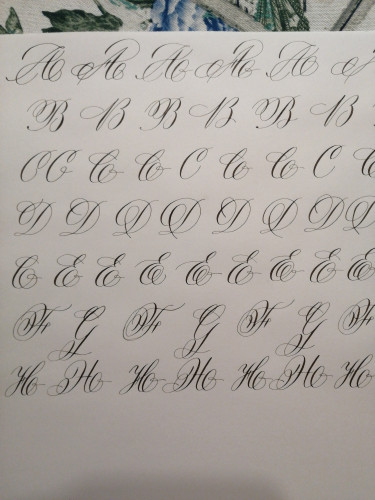 A A A A A A
B B B B B B B
C C C C C C C C C
D D D D D D D D
E E E E E E E E E
F G F G F G F
H H H H H H H